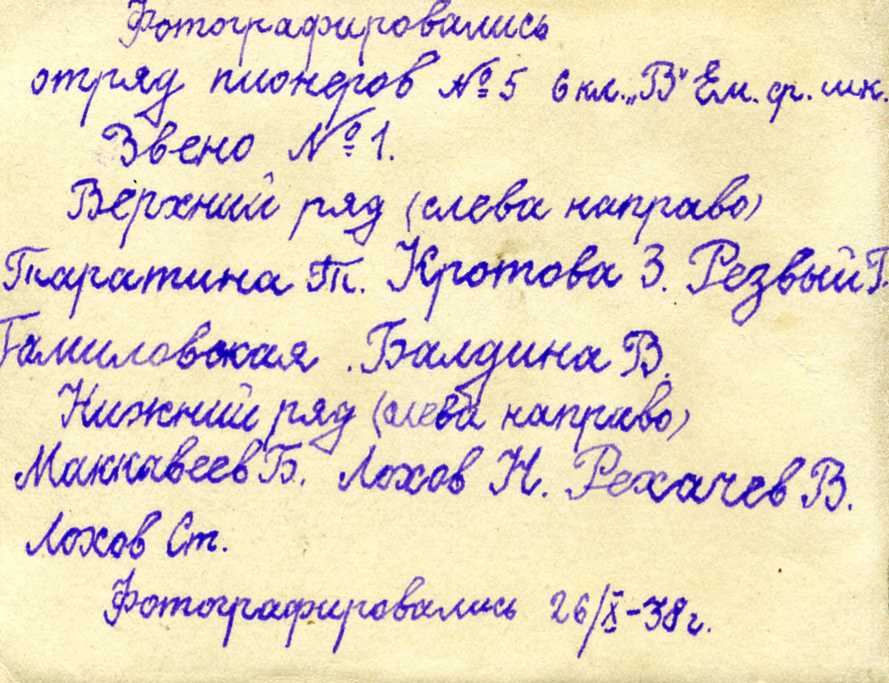 Фотографировались
отряд пионеров № 5 6 кл. „В" Ем. ср. шк.
Звено № 1.
Верхний ряд (слева направо)
Таратина Т. Кротова З. Резвый Г.
Гамиловская . Балдина В.
Нижний ряд (слева направо)
Маккавеев Б. Лохов Н. Рехачев В.
Лохов Ст.
Фотографировались 26/X-38 г.